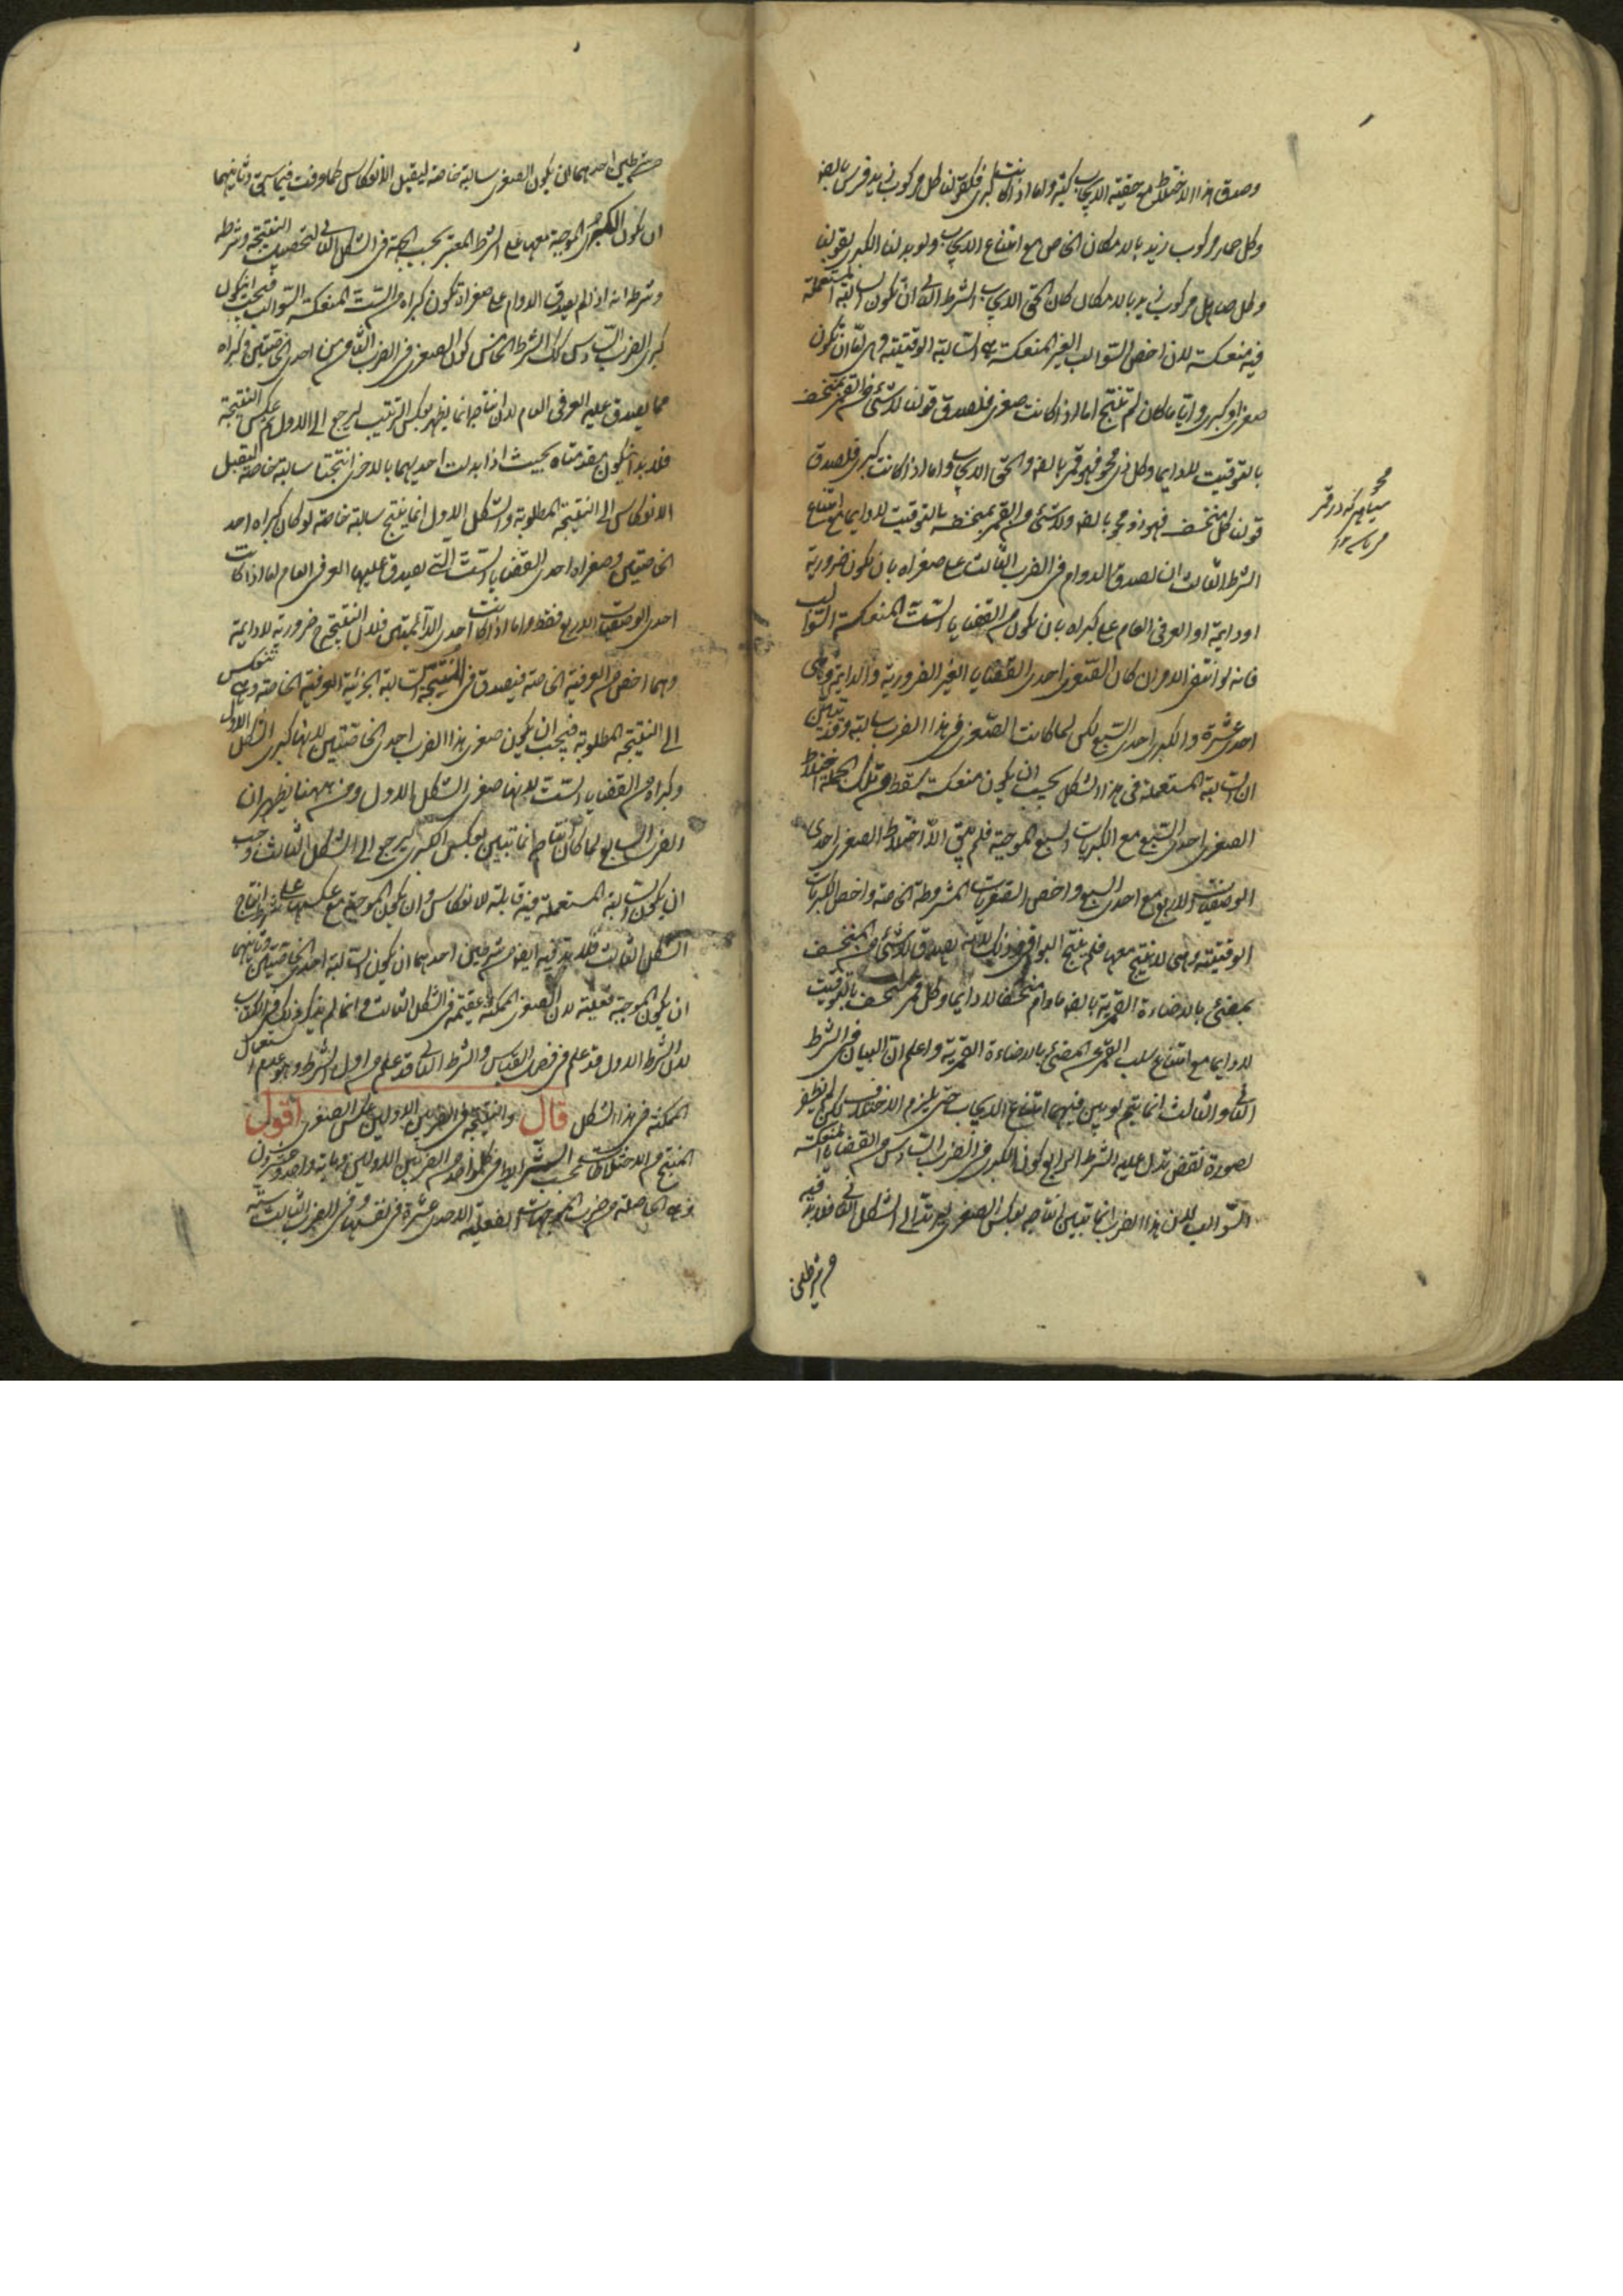 وصدق هذا الاختلاط مع حقيقة الايجاب كثير واما اذا كانت كبرى فكقولنا كل مركوب زيد فرس بالضر
وكل حمار مركوب زيد بالامكان الخاص مع امتناع الايجاب ولو بدلنا الكبرى بقولنا
وكل صاهل مركوب زيد بالامكان كان الحق الايجاب الشرط الثاني ان تكون السالبة المستعملة
فيه منعكسة لان اخص السوالب الغير المنعكسة هي السالبة الوقتيتة وهي اما ان تكون
صغرى او كبرى واياما كان لم تنتج اما اذا كانت صغرى فلصدق قولنا لا شئ من القمر بمنخسف
بالتوقيت لا دايما وكل ذى محو فهو قمر بالضر والحق الايجاب واما اذا كانت كبرى فلصدق
قولنا كل منخسف فهو ذو محو بالضر ولا شئ من القمر بمنخسف بالتوقيت لا دايما مع امتناع
الشرط الثالث ان يصدق الدوام في الضرب الثالث على صغراه بان تكون ضرورية
او دايمة او العرفي العام على كبراه بان تكون من القضايا الست المنعكسة السوالب
فانه لو انتفى الامران كان الصغرى احدى القضايا الغير الضرورية والدايمة وهي
احدى عشرة والكبرى احدى السبع لكن لما كانت الصغرى في هذا الضرب سالبة وقد تبين
ان السالبة المستعملة في هذا الشكل يجب ان يكون منعكسة سقط من تلك الجملة اختلاط
الصغرى احدى السبع مع الكبريات السبع الموجبة فلم يبق الا اختلاط الصغرى احدى
الوصفيات الاربع مع احدى السبع واخص الصغريات المشروطة الخاصة واخص الكبريات
الوقتيتة وهي لا تنتج معها فلم ينتج البواقي وذلك لانه يصدق لا شئ من المنخسف
بمضئ بالاضاءة القمرية بالضر مادام منخسفا لا دايما وكل قمر منخسف بالتوقيت
لا دايما مع امتناع سلب القمر عن المضئ بالاضاءة القمرية واعلم ان البيان في الشرط
الثاني والثالث انما يتم لو بين فيهما امتناع الايجاب حتى يلزم الاختلاف لكن لم يظفر
بصورة نقض تدل عليه الشرط الرابع كون الكبرى في الضرب السادس من القضايا المنعكسة
السوالب لان هذا الضرب انما تبين انتاجه بعكس الصغرى ليرتد الى الشكل الثاني فلا بد فيه
من شرطين
محو
سياهى كه در قمر
شرطين احدهما ان يكون الصغرى سالبة خاصة ليقبل الانعكاس كما عرفت فيما سبق وثانيهما
ان يكون الكبرى الموجبة معها على الشرط المعتبر بحسب الجهة في الشكل الثاني لتحصيل النتيجة وشرطه
وشرط انه اذا لم يصدق الدوام على صغراه تكون كبراه من الست المنعكسة السوالب فيجب ان يكون
كبرى الضرب السادس كذلك الشرط الخامس كون الصغرى في الضرب الثامن من احدى الخاصتين وكبراه
مما يصدق عليه العرفي العام لان انتاجه انما يظهر بعكس الترتيب ليرجع الى الاول ثم عكس النتيجة
فلا بد ان يكون مقدمتاه بحيث اذا بدلت احديهما بالاخرى انتجتا سالبة خاصة لتقبل
الانعكاس الى النتيجة المطلوبة والشكل الاول انما ينتج سالبة خاصة لو كان كبراه احدى
الخاصتين وصغراه احدى القضايا الست التي يصدق عليها العرفي العام اما اذا كانت
احدى الوصفيات الاربع فظ واما اذا كانت احدى الدائمتين فلان النتيجة ح ضرورية لا دايمة
وهما اخص من العرفية الخاصة فيصدق في النتيجة السالبة الجزئية العرفية الخاصة وهي تنعكس
الى النتيجة المطلوبة فيجب ان يكون صغرى هذا الضرب احدى الخاصتين لانها كبرى الشكل الاول
وكبراه من القضايا الست لانها صغرى الشكل الاول ومن ههنا يظهر ان
الضرب السابع لما كان انتاجه انما تبين بعكس الكبرى ليرجع الى الشكل الثالث وجب
ان يكون السالبة المستعملة فيه قابلة للانعكاس وان يكون الموجبة مع عكسها على شرط انتاج
الشكل الثالث فلا بد فيه ايضا من شرطين احدهما ان يكون السالبة احدى الخاصتين وثانيهما
ان يكون الموجبة فعلية لان الصغرى الممكنة عقيمة في الشكل الثالث وانما لم يذكر ذلك في الكتاب
لان الشرط الاول قد علم من فصل القياس والشرط الثاني قد علم من اول الشرط وهو عدم استعمال
الممكنة في هذا الشكل قال والنتيجة في الضربين الاولين عكس الصغرى اقول
المنتج من الاختلاطات بحسب الشرايط في كل واحد من الضربين الاولين ماية واحد وعشرون
وهي الحاصلة من ضرب الموجهات الفعلية الاحدى عشرة في نفسها وفي الضرب الثالث ستة